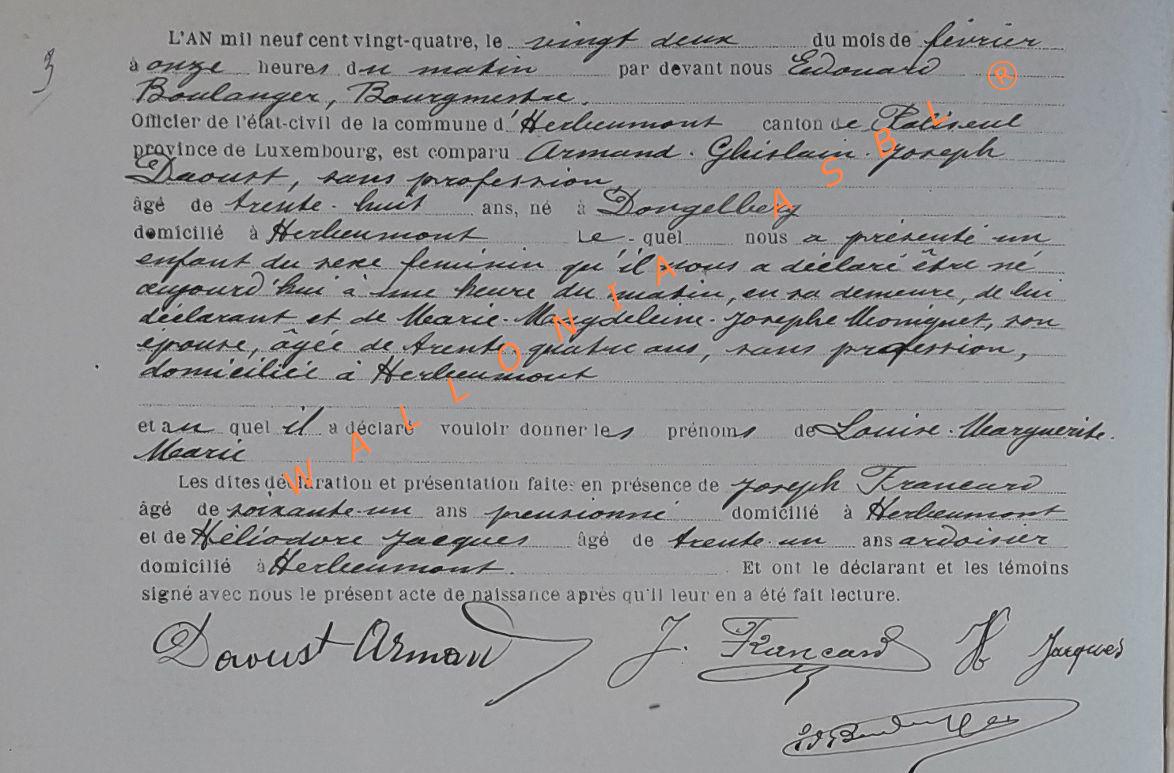 3
L'AN mil neuf cent vingt-quatre, le vingt deux du mois de février
à onze heures du matin par devant nous Edouard
Boulanger, Bourgmestre.
Officier de l'état-civil de la commune d'Herbeumont canton de Paliseul
province de Luxembourg, est comparu Armand-Ghislain-Joseph
Daoust, sans profession
âgé de trente-huit ans, né à Dongelberg
domicilié à Herbeumont Le-quel nous a présenté un
enfant du sexe féminin qu'il nous a déclaré être né
aujourd'hui à une heure du matin, en sa demeure, de lui
déclarant et de Marie-Magdeleine-Josephe Moniquet, son
épouse, âgée de trente-quatre ans, sans profession,
domiciliée à Herbeumont
et au quel il a déclaré vouloir donner les prénoms de Louise-Marguerite-
Marie
Les dites déclaration et présentation faites en présence de Joseph Francard
âgé de soixante-un ans pensionné domicilié à Herbeumont
et de Héliodore Jacques âgé de trente-un ans ardoisier
domicilié à Herbeumont. Et ont le déclarant et les témoins
signé avec nous le présent acte de naissance après qu'il leur en a été fait lecture.
Daoust Armand J. Francard H Jacques
Ed Boulanger
WALLONIA ASBL ®